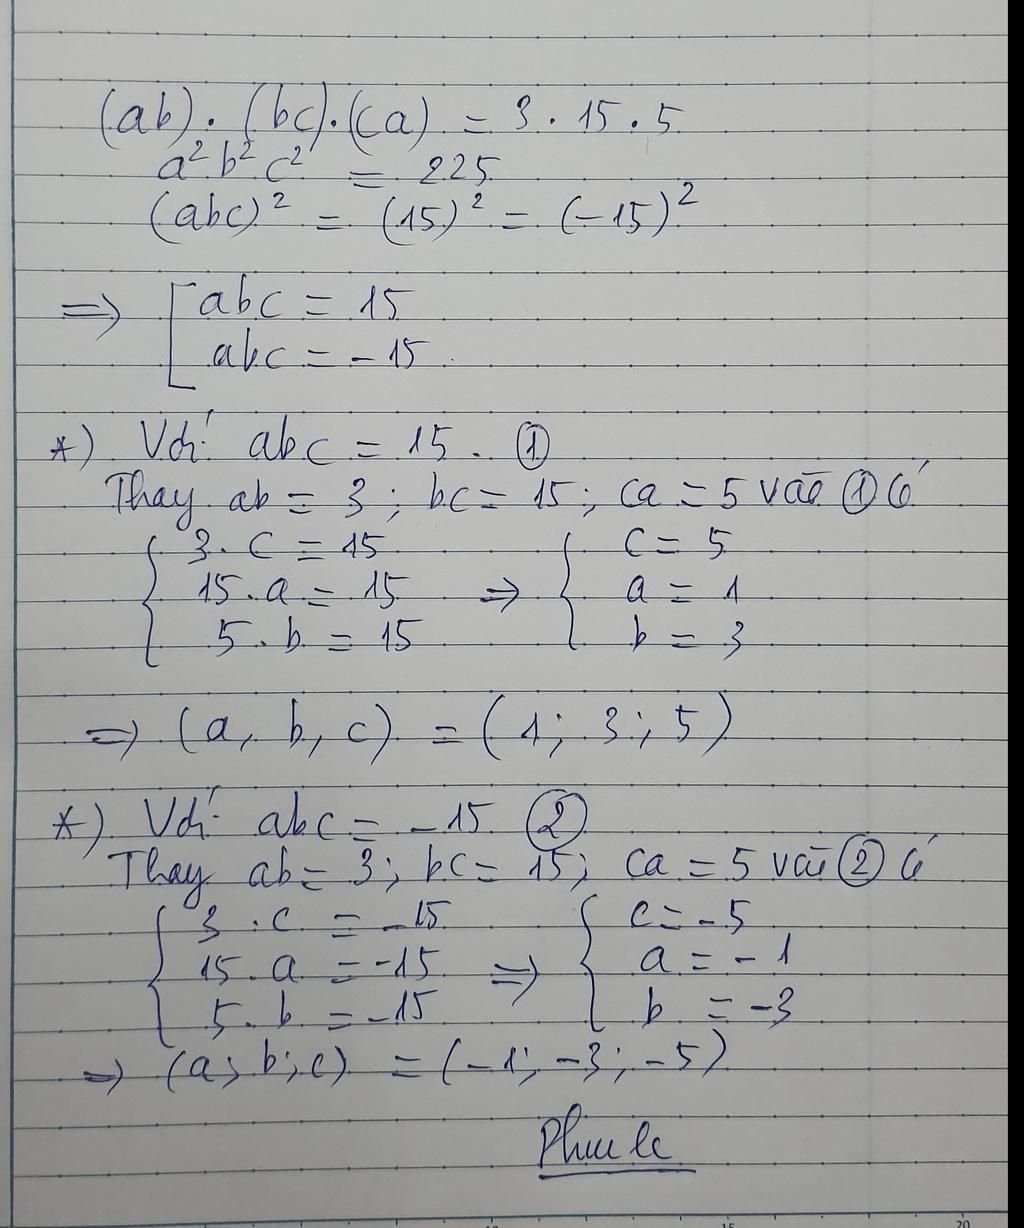 (ab). (bc).(ca) = 3 . 15 . 5
a² b² c² = 225
(abc)² = (15)² = (-15)²
=> [ abc = 15
abc = - 15
*) Với abc = 15. ①
Thay ab = 3 ; bc = 15 ; ca = 5 vào ① có
{ 3. c = 15 { c = 5
15. a = 15 => a = 1
5. b = 15 b = 3
=> (a, b, c) = (1; 3; 5)
*) Với abc = -15 ②
Thay ab = 3; bc = 15; ca = 5 vào ② có
{ 3 . c = -15 { c = -5
15. a = -15 => a = -1
5. b = -15 b = -3
=> (a; b; c) = (-1; -3; -5)
15 20